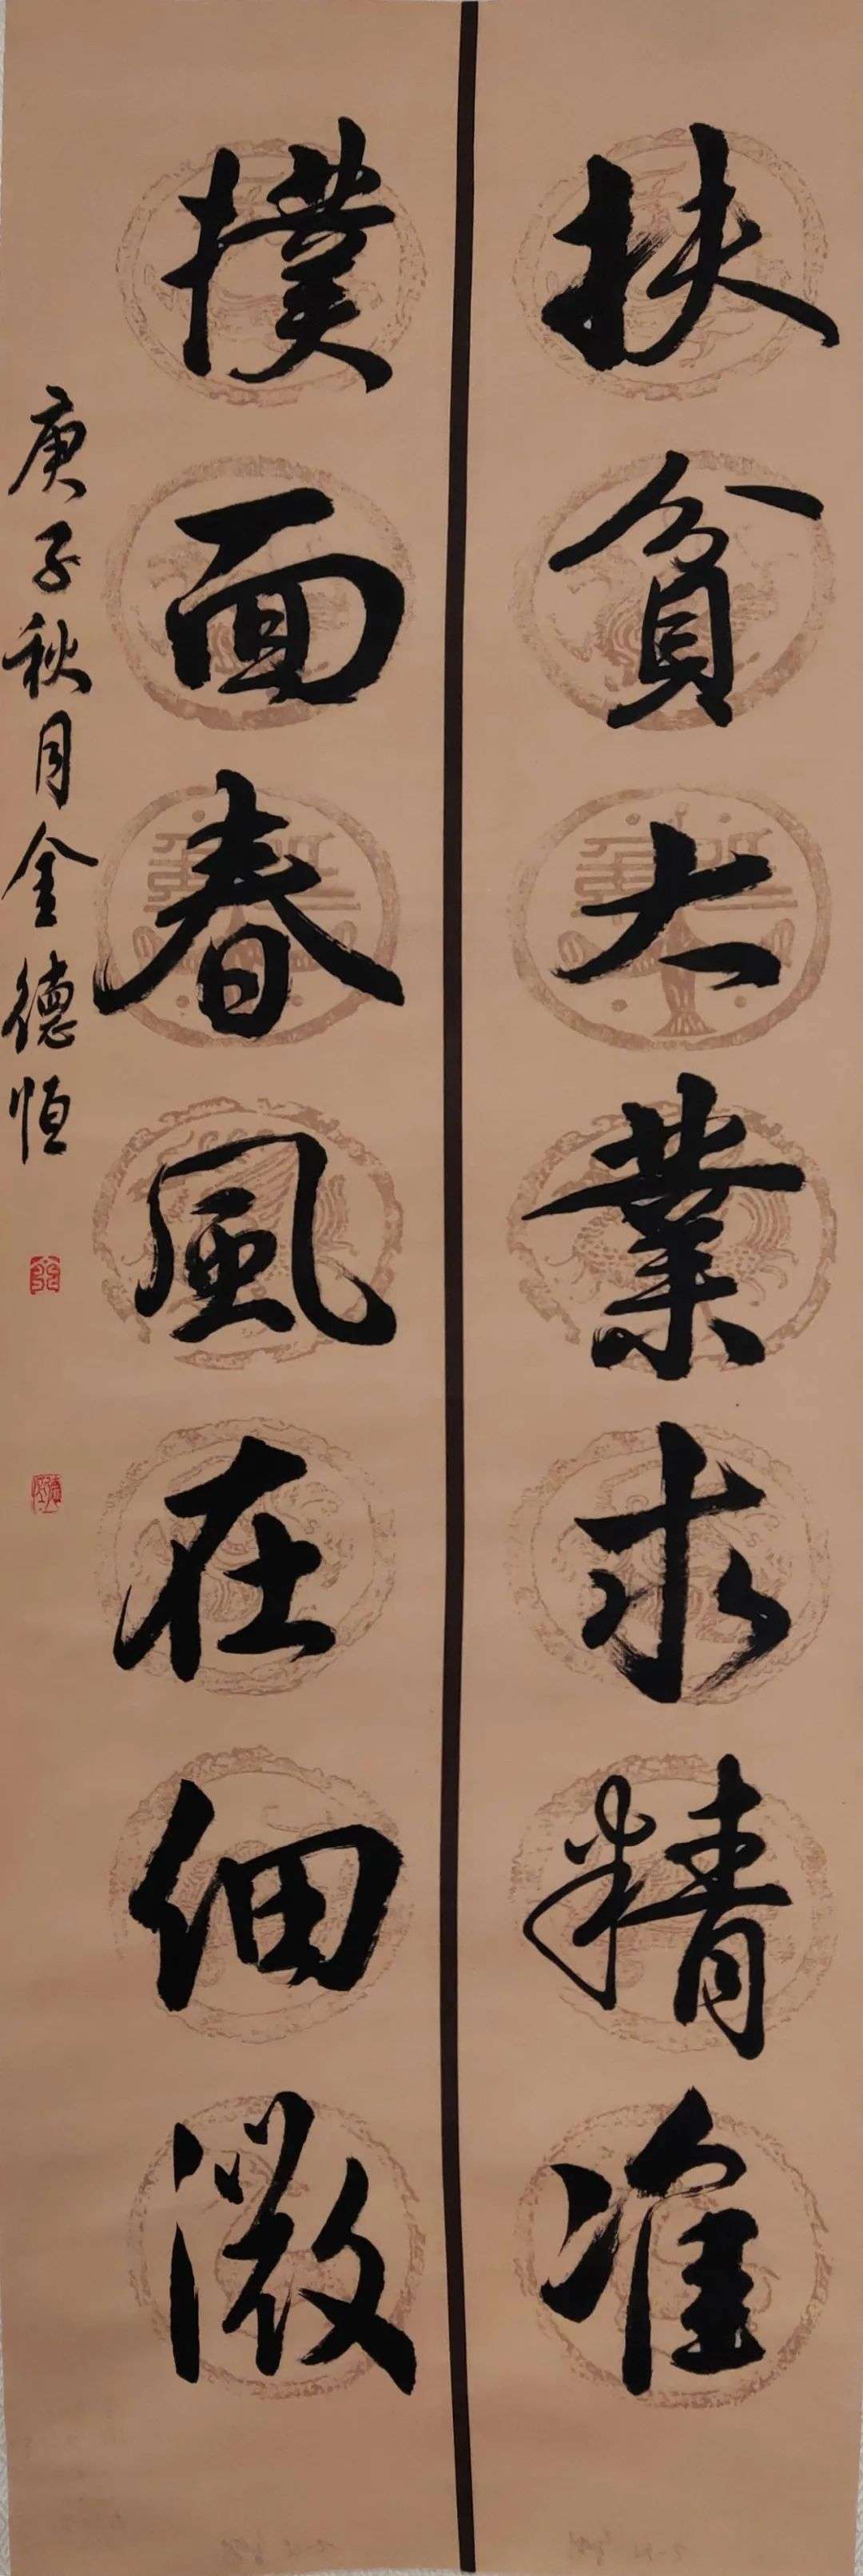 扶貧大業求精准
撲面春風在細微
庚子秋月金德恒